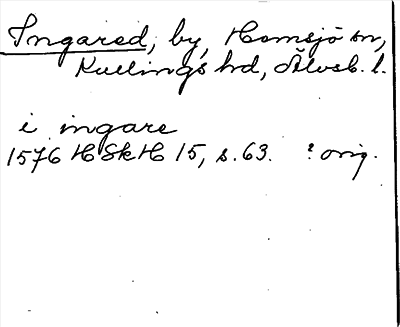 Ingared, by, Hemsjö sn,
Kullings hd, Älvsb. l.
i ingare
1576 HSkH 15, s. 63. ? orig.